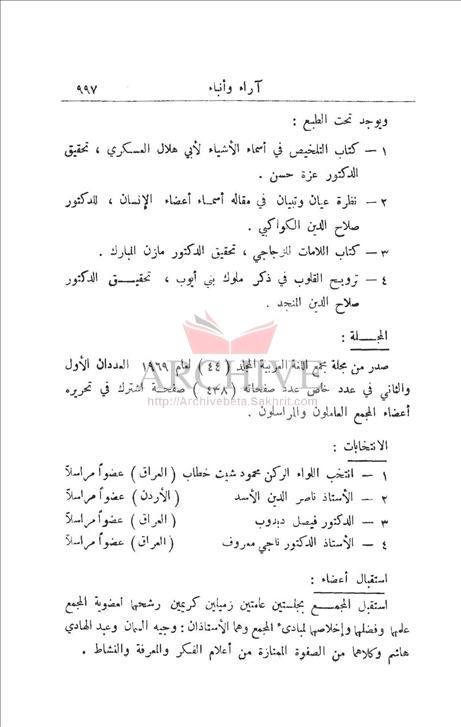 آراء وأنباء ٩٩٧
ويوجد تحت الطبع :
١ — كتاب التلخيص في أسماء الأشياء لأبي هلال العسكري ، تحقيق
الدكتور عزة حسن .
٢ — نظرة عيان وتبيان في مقاله أسماء أعضاء الإنسان ، للدكتور
صلاح الدين الكواكبي .
٣ — كتاب اللامات للزجاجي ، تحقيق الدكتور مازن المبارك .
٤ — ترويح القلوب في ذكر ملوك بني أيوب ، تحقيق الدكتور
صلاح الدين المنجد .
المجلة :
صدر من مجلة مجمع اللغة العربية المجلد ( ٤٤ ) لعام ١٩٦٩ العددان الأول
ARCHIVE
والثاني في عدد خاص عدد صفحاته ( ٤٣٨ ) صفحة اشترك في تحريره
http://Archivebeta.Sakhrit.com
أعضاء المجمع العاملون والمراسلون .
الانتخابات :
١ — انتخب اللواء الركن محمود شيت خطاب ( العراق ) عضواً مراسلاً
٢ — الأستاذ ناصر الدين الأسد ( الأردن ) عضواً مراسلاً
٣ — الدكتور فيصل دبدوب ( العراق ) عضواً مراسلاً
٤ — الأستاذ الدكتور ناجي معروف ( العراق ) عضواً مراسلاً
استقبال أعضاء :
استقبل المجمع بجلستين عامتين زميلين كريمين رشحها لعضوية المجمع
علمها وفضلها وإخلاصها لمبادىء المجمع وهما الأستاذان : وجيه السمان وعبد الهادي
هاشم وكلاهما من الصفوة الممتازة من أعلام الفكر والمعرفة والنشاط .